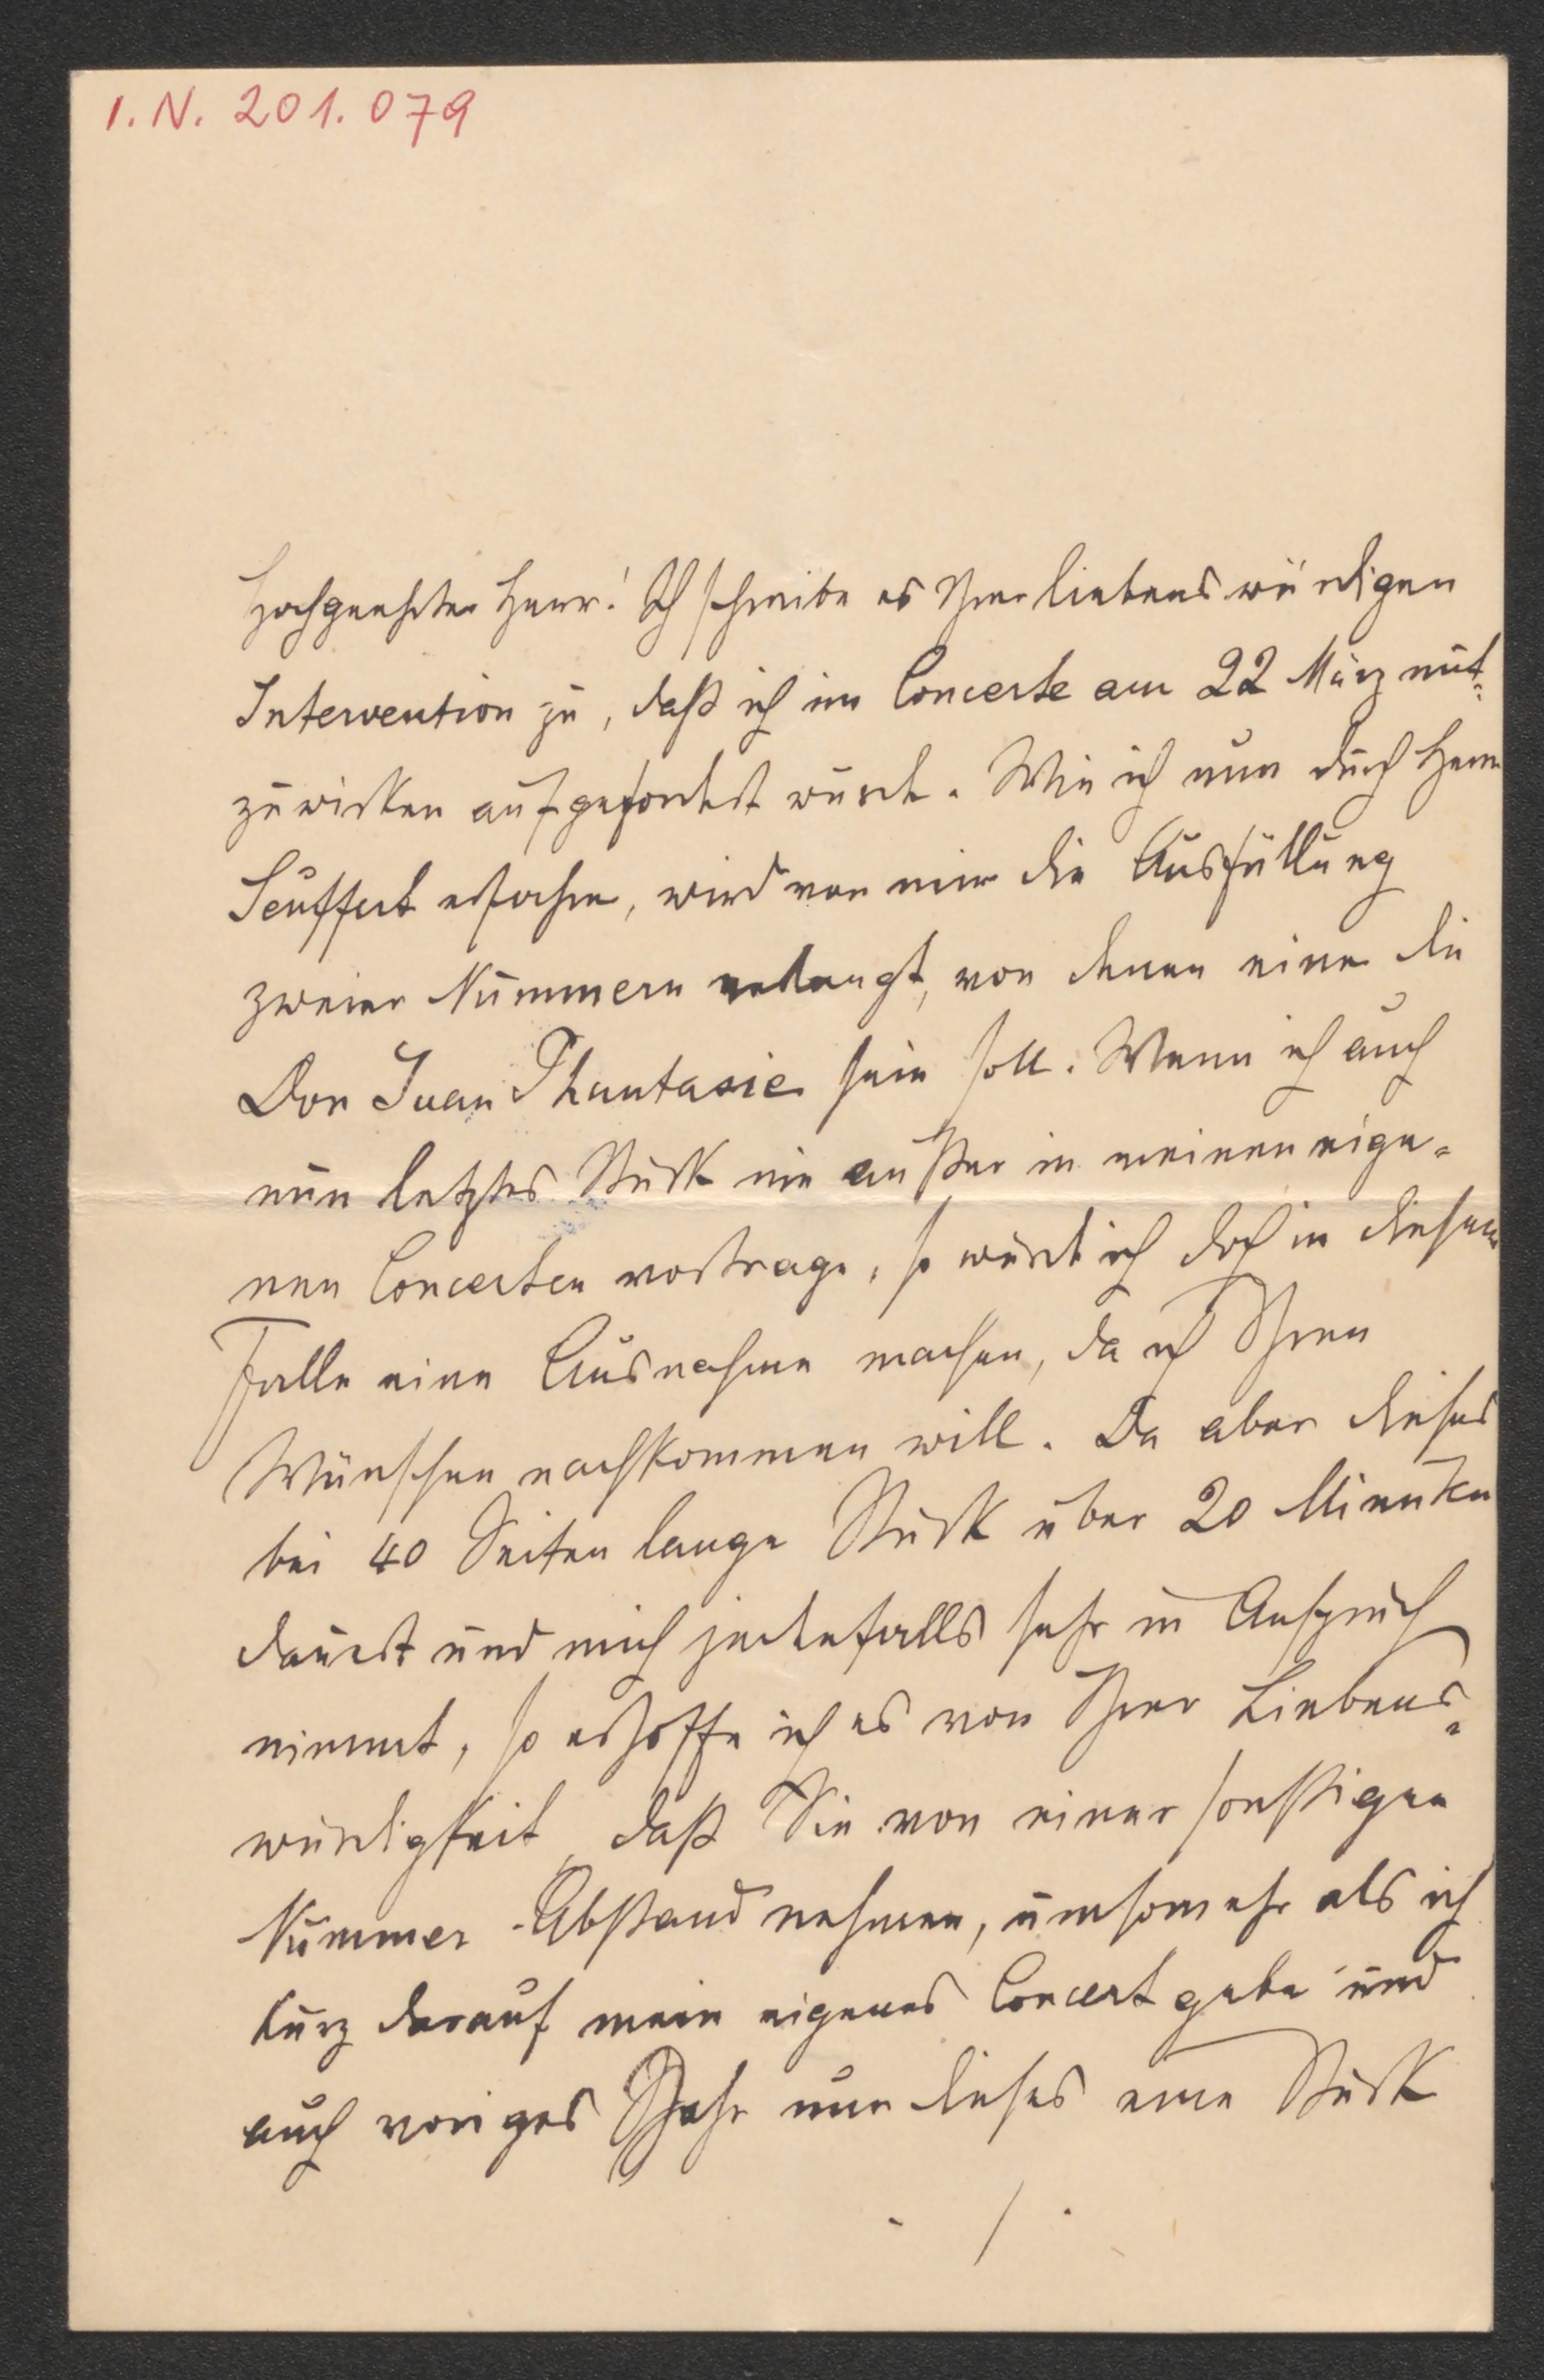 I.N. 201.079
Hochgeehrter Herr! Ich schreibe es Ihrer liebenswürdigen
Intervention zu, daß ich im Concerte am 22 März mit-
zuwirken aufgefordert wurde. Wie ich nun durch Herrn
Seuffert erfahre, wird von mir die Ausfüllung
zweier Nummern verlangt, von denen eine die
Don Juan Phantasie sein soll. Wenn ich auch
nun letztes Stück nie außer in meinen eige-
nen Concerten vortrage, so würde ich doch in diesem
Falle eine Ausnahme machen, da ich Ihren
Wünschen nachkommen will. Da aber dieses
bei 40 Seiten lange Stück über 20 Minuten
dauert und mich jedenfalls sehr in Anspruch
nimmt, so erhoffe ich es von Ihrer Liebens-
würdigkeit, daß Sie von einer sonstigen
Nummer Abstand nehmen, umsomehr als ich
kurz darauf mein eigenes Concert gebe und
auch voriges Jahr nur dieses eine Stück
./.